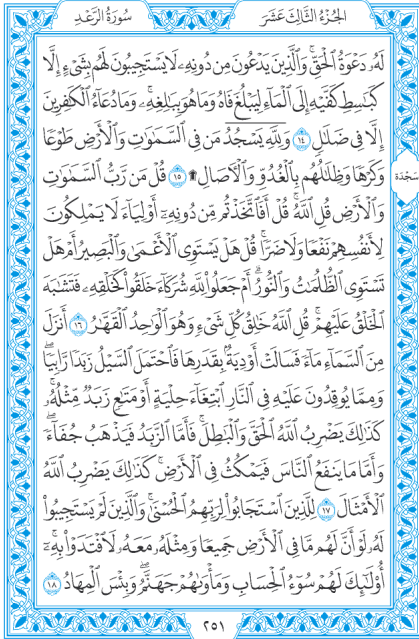 الجُزْءُ الثَّالِثَ عَشَرَ
سُورَةُ الرَّعْدِ
لَهُۥ دَعْوَةُ ٱلْحَقِّۚ وَٱلَّذِينَ يَدْعُونَ مِن دُونِهِۦ لَا يَسْتَجِيبُونَ لَهُم بِشَىْءٍ إِلَّا
كَبَٰسِطِ كَفَّيْهِ إِلَى ٱلْمَآءِ لِيَبْلُغَ فَاهُ وَمَا هُوَ بِبَٰلِغِهِۦۚ وَمَا دُعَآءُ ٱلْكَٰفِرِينَ
إِلَّا فِى ضَلَٰلٍ ١٤ وَلِلَّهِ يَسْجُدُ مَن فِى ٱلسَّمَٰوَٰتِ وَٱلْأَرْضِ طَوْعًا
وَكَرْهًا وَظِلَٰلُهُم بِٱلْغُدُوِّ وَٱلْـَٔاصَالِ ۩ ١٥ قُلْ مَن رَّبُّ ٱلسَّمَٰوَٰتِ
سَجْدَة
وَٱلْأَرْضِ قُلِ ٱللَّهُۚ قُلْ أَفَٱتَّخَذْتُم مِّن دُونِهِۦٓ أَوْلِيَآءَ لَا يَمْلِكُونَ
لِأَنفُسِهِمْ نَفْعًا وَلَا ضَرًّاۚ قُلْ هَلْ يَسْتَوِى ٱلْأَعْمَىٰ وَٱلْبَصِيرُ أَمْ هَلْ
تَسْتَوِى ٱلظُّلُمَٰتُ وَٱلنُّورُۗ أَمْ جَعَلُوا۟ لِلَّهِ شُرَكَآءَ خَلَقُوا۟ كَخَلْقِهِۦ فَتَشَٰبَهَ
ٱلْخَلْقُ عَلَيْهِمْۚ قُلِ ٱللَّهُ خَٰلِقُ كُلِّ شَىْءٍ وَهُوَ ٱلْوَٰحِدُ ٱلْقَهَّٰرُ ١٦ أَنزَلَ
مِنَ ٱلسَّمَآءِ مَآءً فَسَالَتْ أَوْدِيَةٌۢ بِقَدَرِهَا فَٱحْتَمَلَ ٱلسَّيْلُ زَبَدًا رَّابِيًاۖ
وَمِمَّا يُوقِدُونَ عَلَيْهِ فِى ٱلنَّارِ ٱبْتِغَآءَ حِلْيَةٍ أَوْ مَتَٰعٍ زَبَدٌ مِّثْلُهُۥۚ
كَذَٰلِكَ يَضْرِبُ ٱللَّهُ ٱلْحَقَّ وَٱلْبَٰطِلَۚ فَأَمَّا ٱلزَّبَدُ فَيَذْهَبُ جُفَآءًۖ
وَأَمَّا مَا يَنفَعُ ٱلنَّاسَ فَيَمْكُثُ فِى ٱلْأَرْضِۚ كَذَٰلِكَ يَضْرِبُ ٱللَّهُ
ٱلْأَمْثَالَ ١٧ لِلَّذِينَ ٱسْتَجَابُوا۟ لِرَبِّهِمُ ٱلْحُسْنَىٰۚ وَٱلَّذِينَ لَمْ يَسْتَجِيبُوا۟
لَهُۥ لَوْ أَنَّ لَهُم مَّا فِى ٱلْأَرْضِ جَمِيعًا وَمِثْلَهُۥ مَعَهُۥ لَٱفْتَدَوْا۟ بِهِۦٓۚ
أُو۟لَٰٓئِكَ لَهُمْ سُوٓءُ ٱلْحِسَابِ وَمَأْوَىٰهُمْ جَهَنَّمُۖ وَبِئْسَ ٱلْمِهَادُ ١٨
٢٥١